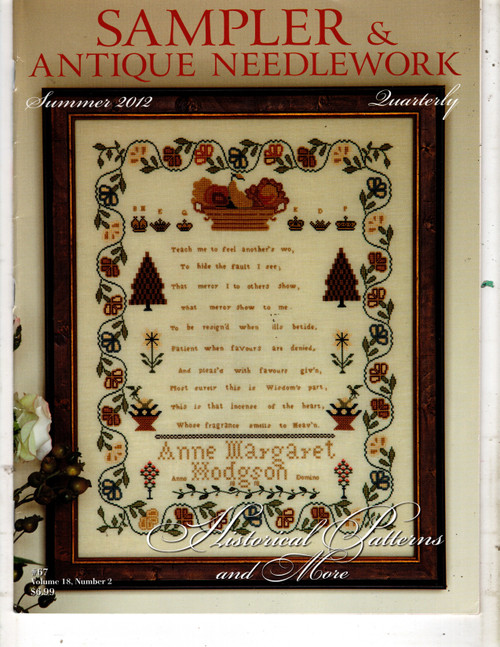 SAMPLER &
ANTIQUE NEEDLEWORK
Summer 2012 Quarterly
Teach me to feel another's wo,
To hide the fault I see;
That mercy I to others show,
what mercy show to me.
To be resign'd when ills betide,
Patient when favours are denied,
And pleas'd with favours giv'n,
Most surely this is Wisdom's part,
This is that incense of the heart,
Whose fragrance smells to Heav'n.
Anne Margaret
Hodgson
Anno Domino
Historical Patterns
and More
#67
Volume 18, Number 2
$6.99